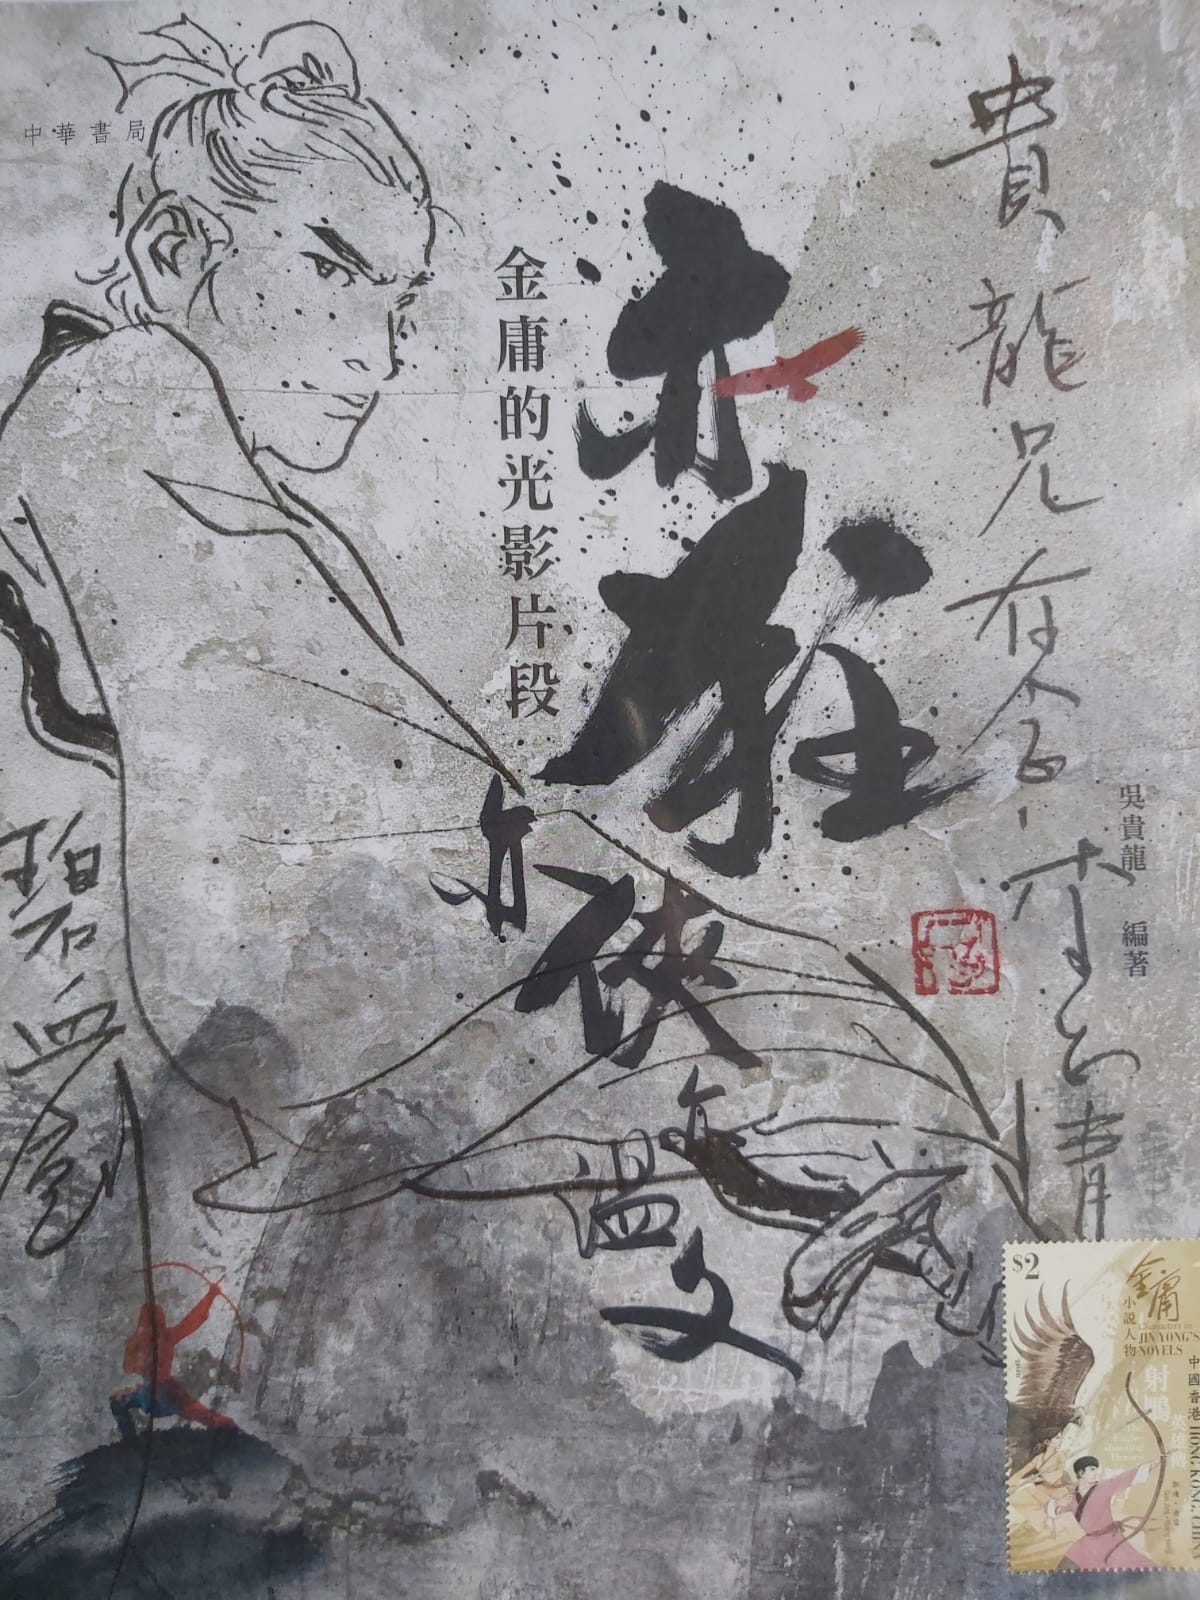 中華書局
亦狂
亦俠
亦溫文
金庸的光影片段
吳貴龍 編著
貴龍兄存念
李志清
碧血劍
$2
金庸
小說人物
Characters in
JIN YONG'S
NOVELS
射鵰
中國香港 HONG KONG, CHINA